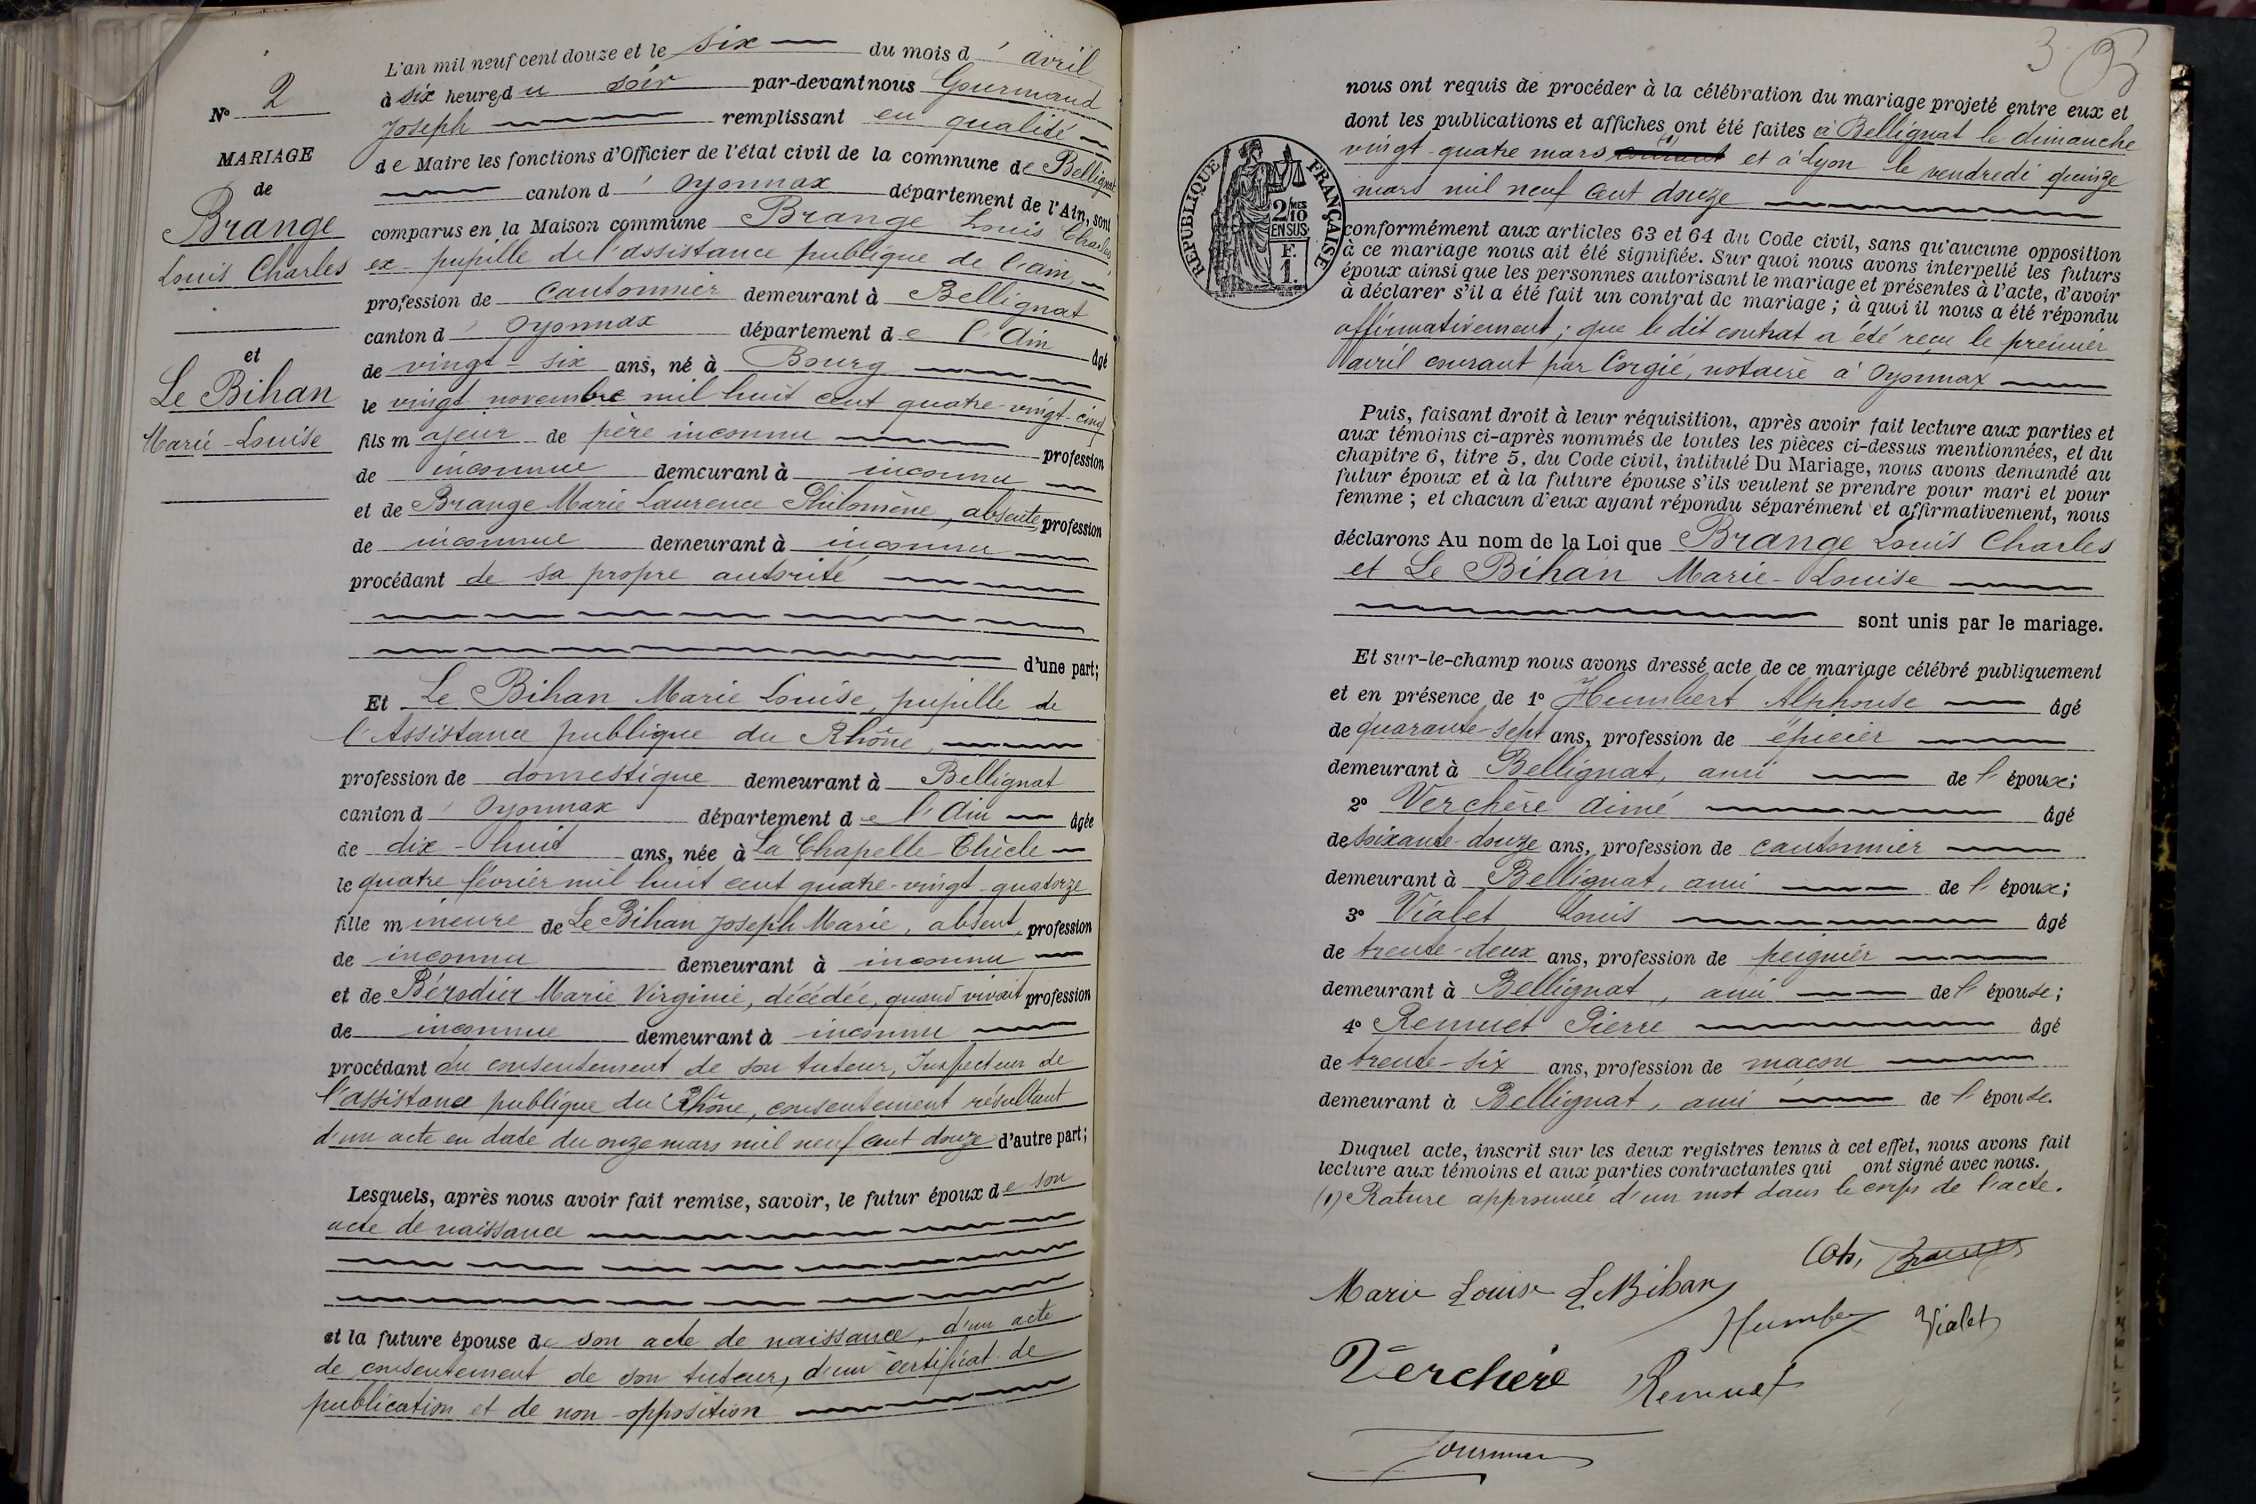 L'an mil neuf cent douze et le six du mois d'avril
à six heures du soir par-devant nous Gourmand
Joseph remplissant en qualité
N° 2
de Maire les fonctions d'Officier de l'état civil de la commune de Bellignat
MARIAGE
canton d'Oyonnax département de l'Ain, sont
de
comparus en la Maison commune Brange Louis Charles,
Brange
ex-pupille de l'assistance publique de l'ain,
Louis Charles
profession de cantonnier demeurant à Bellignat
canton d'Oyonnax département de l'Ain âgé
et
de vingt-six ans, né à Bourg
Le Bihan
le vingt novembre mil huit cent quatre-vingt-cinq
Marie-Louise
fils majeur de père inconnu profession
de inconnue demeurant à inconnu
et de Brange Marie Laurence Philomène, absente, profession
de inconnue demeurant à inconnu
procédant de sa propre autorité
d'une part;
Et Le Bihan Marie Louise, pupille de
l'Assistance publique du Rhône,
profession de domestique demeurant à Bellignat
canton d'Oyonnax département de l'Ain âgée
de dix-huit ans, née à La Chapelle-Thècle
le quatre février mil huit cent quatre-vingt-quatorze
fille mineure de Le Bihan Joseph Marie, absent, profession
de inconnu demeurant à inconnu
et de Bérodier Marie Virginie, décédée, quand vivait profession
de inconnue demeurant à inconnu
procédant du consentement de son tuteur, Inspecteur de
l'assistance publique du Rhône, consentement résultant
d'un acte en date du onze mars mil neuf cent douze d'autre part;
Lesquels, après nous avoir fait remise, savoir, le futur époux de son
acte de naissance
et la future épouse de son acte de naissance, d'un acte
de consentement de son tuteur, d'un certificat de
publication et de non-opposition
3
nous ont requis de procéder à la célébration du mariage projeté entre eux et
dont les publications et affiches ont été faites à Bellignat le dimanche
vingt-quatre mars (1) courant et à Lyon le vendredi quinze
mars mil neuf cent douze
RÉPUBLIQUE FRANÇAISE
2/10 MES
EN SUS
F.
1.
conformément aux articles 63 et 64 du Code civil, sans qu'aucune opposition
à ce mariage nous ait été signifiée. Sur quoi nous avons interpellé les futurs
époux ainsi que les personnes autorisant le mariage et présentes à l'acte, d'avoir
à déclarer s'il a été fait un contrat de mariage; à quoi il nous a été répondu
affirmativement; que le dit contrat a été reçu le premier
avril courant par Corgié, notaire à Oyonnax
Puis, faisant droit à leur réquisition, après avoir fait lecture aux parties et
aux témoins ci-après nommés de toutes les pièces ci-dessus mentionnées, et du
chapitre 6, titre 5, du Code civil, intitulé Du Mariage, nous avons demandé au
futur époux et à la future épouse s'ils veulent se prendre pour mari et pour
femme; et chacun d'eux ayant répondu séparément et affirmativement, nous
déclarons Au nom de la Loi que Brange Louis Charles
et Le Bihan Marie-Louise
sont unis par le mariage.
Et sur-le-champ nous avons dressé acte de ce mariage célébré publiquement
et en présence de 1° Humbert Alphonse âgé
de quarante-sept ans, profession de épicier
demeurant à Bellignat, ami de l'époux;
2° Verchère Aimé âgé
de soixante-douze ans, profession de cantonnier
demeurant à Bellignat, ami de l'époux;
3° Vialet Louis âgé
de trente-deux ans, profession de peignier
demeurant à Bellignat, ami de l'épouse;
4° Remuet Pierre âgé
de trente-six ans, profession de maçon
demeurant à Bellignat, ami de l'épouse.
Duquel acte, inscrit sur les deux registres tenus à cet effet, nous avons fait
lecture aux témoins et aux parties contractantes qui ont signé avec nous.
(1) Rature approuvée d'un mot dans le corps de l'acte.
Ch. Brange
Marie Louise LeBihan
Humbert Vialet
Verchère Remuet